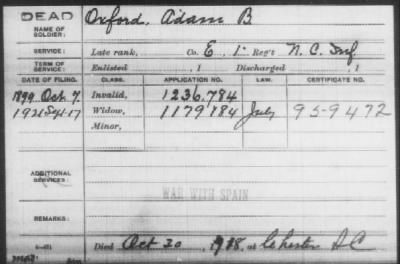 DEAD
NAME OF SOLDIER: Oxford, Adam B
SERVICE: Late rank, Co. E, 1 Reg't N. C. Inf
TERM OF SERVICE: Enlisted , 1 Discharged , 1
DATE OF FILING. CLASS. APPLICATION NO. LAW. CERTIFICATE NO.
1899 Oct 7. Invalid, 1236,784
1921 Sept 17 Widow, 1179184 July 959472
Minor,
ADDITIONAL SERVICES:
WAR WITH SPAIN
REMARKS:
Died Oct 30, 1918, at Chester SC